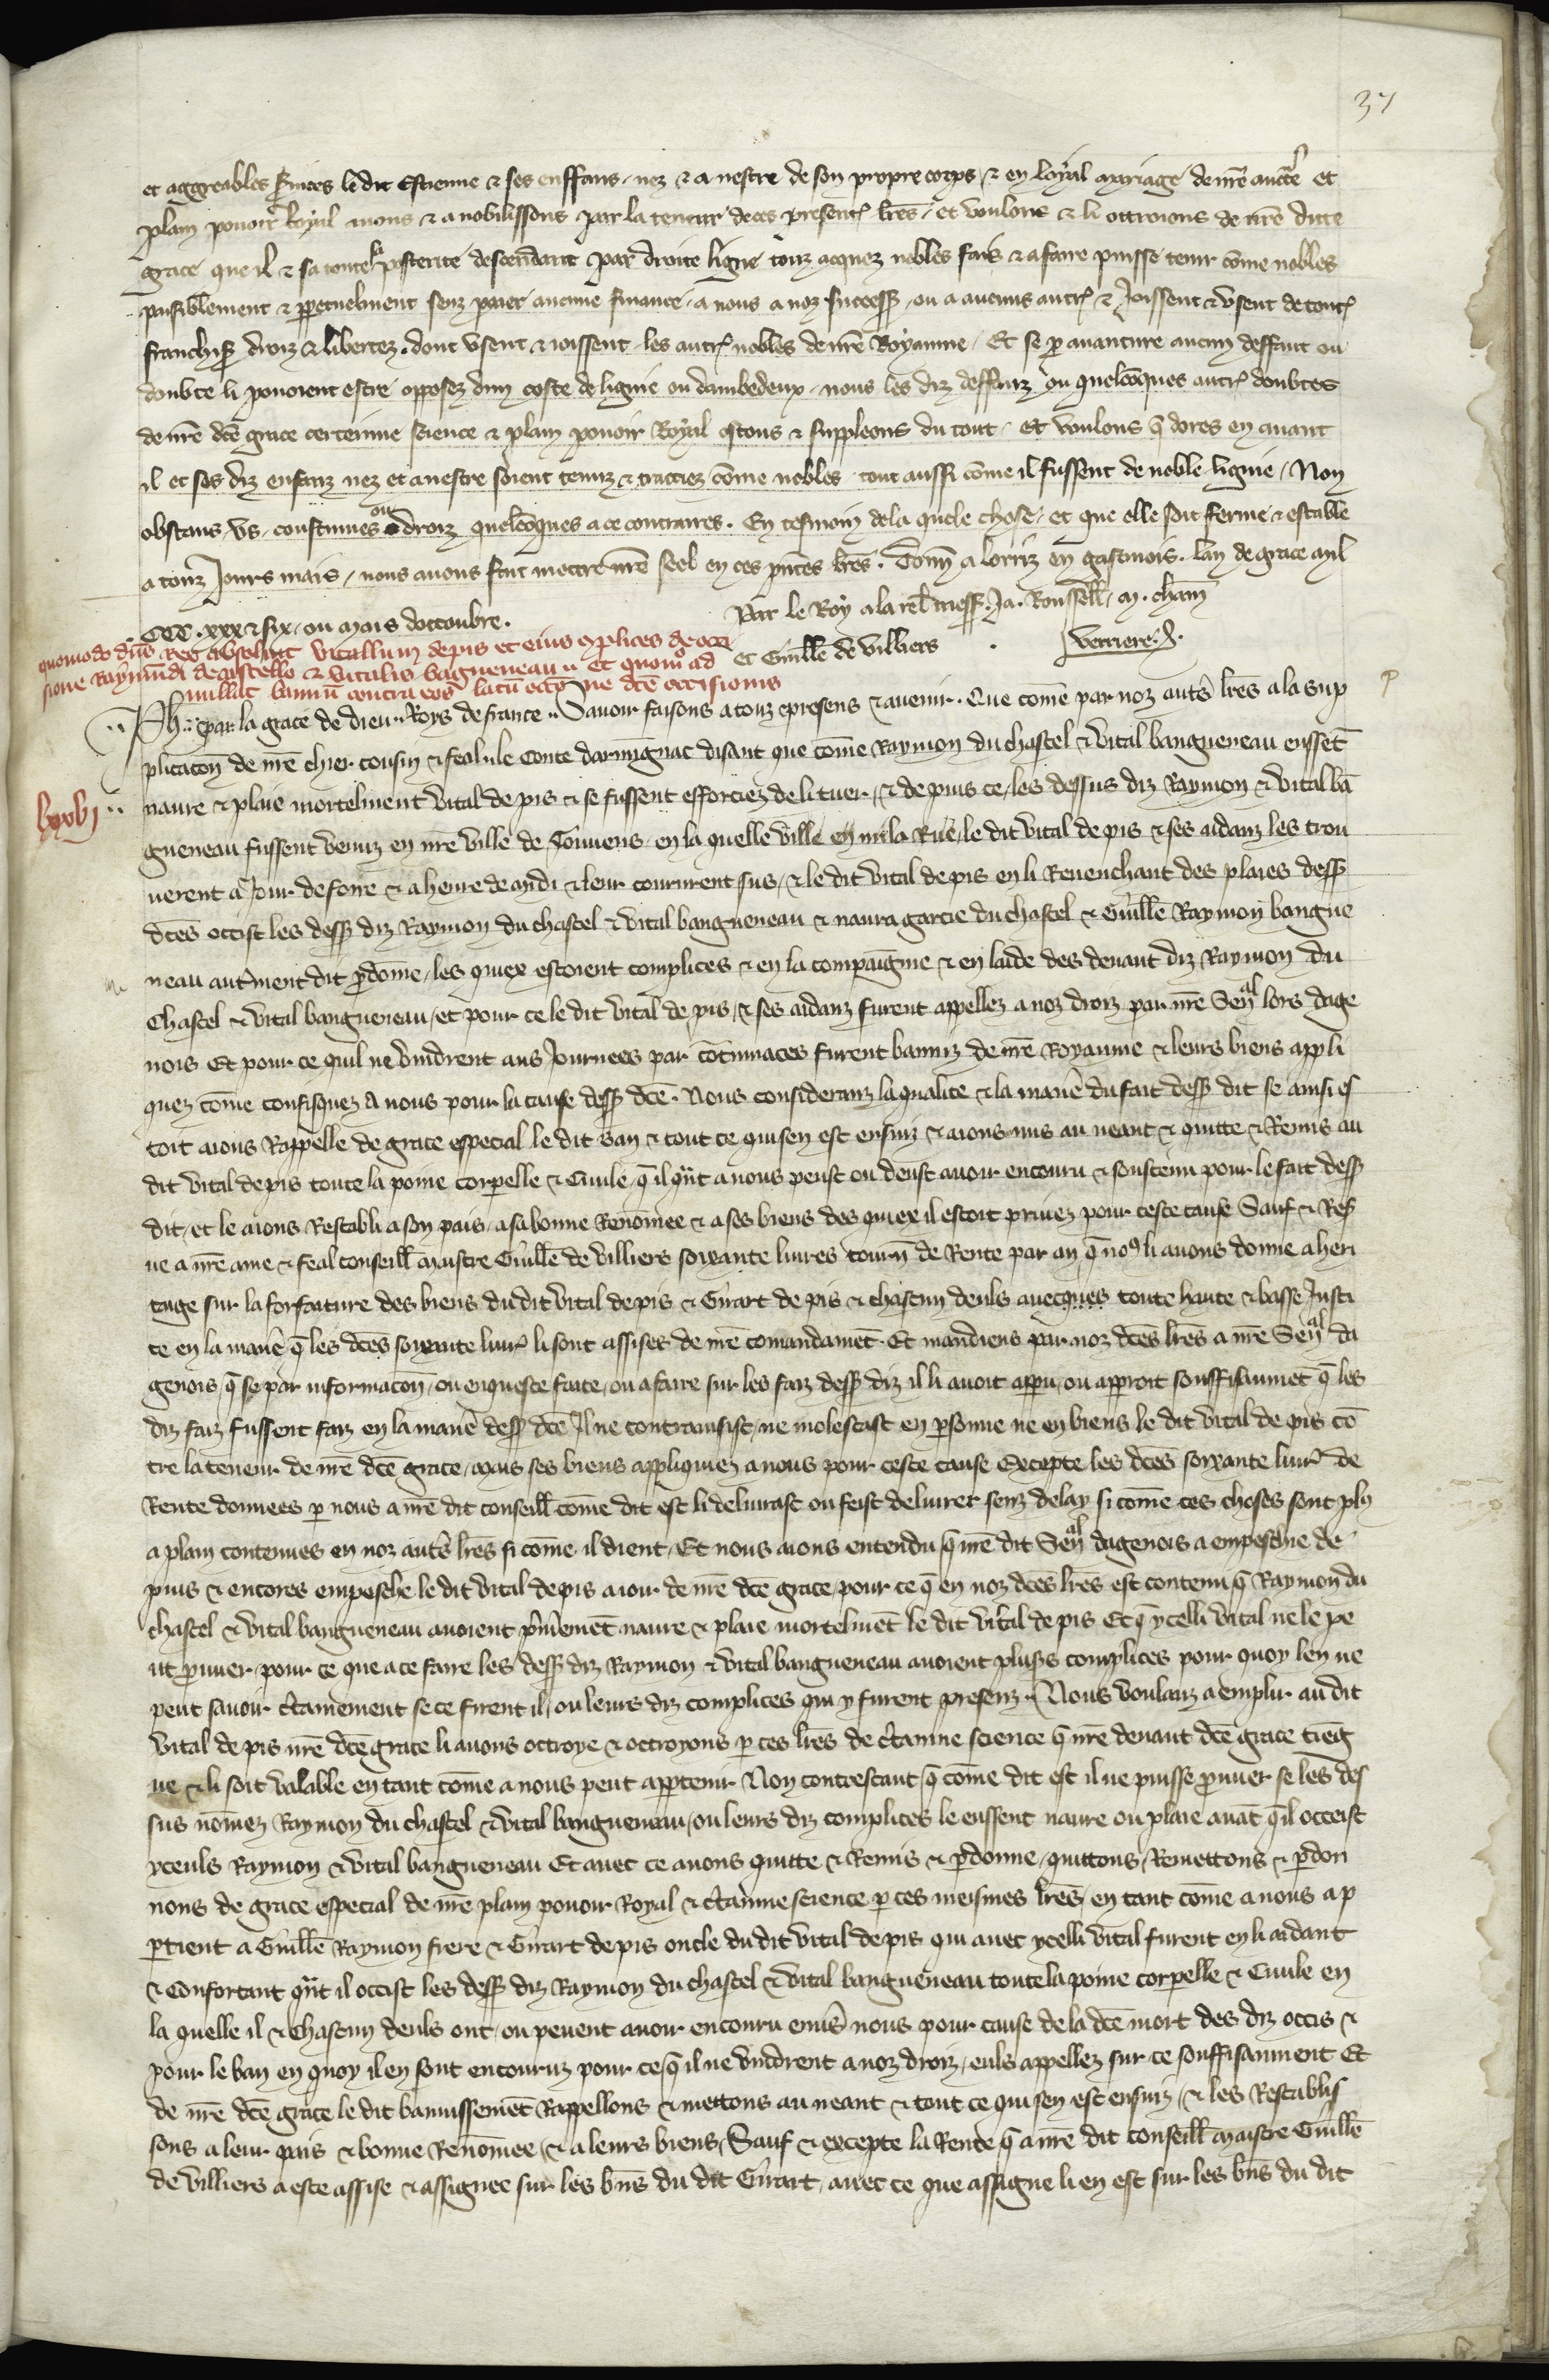 37
et aggreables services le dit Estienne & ses enffans nez & a nestre de son propre corps & en loyal mariage de nr̄e auct̄e et
plain pouoir Royal auons & anobilissons par la teneur de ces present̄ lr̄es et voulons & li ottroions de nr̄e dicte
grace que il & sa toute la posterite descendant par droite ligne touz acquez nobles fais & a faire puisse tenir cōme nobles
paisiblement & ꝑpetuelment senz paier aucune finance a nous a noz success̄ ou a aucuns autr̄ & Joissent & vsent de tout̄
franchis̄ droiz & libertez dont vsent & ioissent les autr̄ nobles de nr̄e Royaume Et se ꝑ auanture aucun deffaut ou
doubte li pouoient estre opposez dun coste de lignie ou dambedeux nous les diz deffauz ou quelcōques autr̄ doubtes
de nr̄e dc̄e grace certeinne science & plain pouoir Royal ostons & suppleons du tout et voulons q̄ dores en auant
il et ses diz enfanz nez et a nestre soient tenuz & traictiez cōme nobles tout aussi cōme il fussent de noble lignie Non
obstans vs coustumes ou droiz quelcōques a ce contraires. En tesmoin de la quele chose et que elle soit ferme & estable
a touz Jours mais nous auons fait mettre nr̄e seel en ces pn̄tes lr̄es. Donn̄ a lorriz en gastinois. lan de grace mil
CCC. xxx & six ou mois doctoubre.
Par le Roy a la rel̄ mess̄. Ja. Roussell̄ m. cham̄
et Guill̄e de villiers
Verriere.
quomodo dn̄s Rex absoluit vitallum de pis et eius ꝯplices de occi
sione Raymūdi de castello & vitalis baguneau et quom̊ ad
nullat bannū contra eos latū occōne dc̄e occisionis
Ph. par la grace de dieu Roys de france Sauoir faisons a touz presens & auenir. Que comē par noz aut̄s lr̄es a la sup
plicacōn de nr̄e chier cousin & feal le Conte darmignac disant que cōme Raymon du chastel & vital baugueneau eussēt
lxxvj
naure & plaie mortelment vital de pis & se fussent efforciez de li tuer, & depuis ce les dessus diz Raymon & vital bā
gueneau fussent venuz en nr̄e ville de Touuens en la quelle ville en mi la Rue le dit vital de pis & ses aidanz les trou
uerent a Jour de foire & a heure de midi & leur coururent sus, & le dit vital de pis en li Reuenchant des plaies dess̄
dc̄es occist les dess̄ diz Raymon du chastel & vital baugueneau & naura garcie du chastel & Guill̄e Raymon baugue
neau aut̄ment dit p̄dōme, les quiex estoient complices & en la compaignie & en laide des deuant diz Raymon du
Chastel & vital baugueneau, et pour ce le dit vital de pis, & ses aidanz furent appellez a noz droiz par nr̄e Sen̄al lors dage
nois Et pour ce quil ne vindrent aus Journees par cōtumaces furent banniz de nr̄e Royaume & leurs biens appli
quez cōme confisquez a nous pour la cause dess̄ dc̄e. Nous consideranz la qualite & la manie̊ du fait dess̄ dit se ainsi es
toit aions Rappelle de grace especial le dit ban & tout ce qui sen est ensuiz & aions mis au neant & quitte & Remis au
dit vital de pis toute la poine corporelle & Ciuile q̄ il q̄nt a nous peust ou deust auoir encouru & soustenu pour le fait dess̄
dit, et le aions Restabli a son pais, a sa bonne Renōmee & a ses biens des quiex il estoit priuez pour ceste cause Sauf & Res̄
ue a nr̄e ame & feal conseill̄ maistre Guill̄e de villiers soixante liures tourn̄ de Rente par an q̄ no9 li auons donne a heri
tage sur la forfaiture des biens du dit vital de pis & Girart de pis & chascun deuls auecques toute haute & basse Justi
ce en la manie̊ q̄ les dc̄es soixante liur̄ li sont assises de nr̄e comandamēt. Et mandiens par noz dc̄es lr̄es a nr̄e Sen̄al da
genois, q̄ se par informacōn, ou enqueste faite, ou a faire sur les faiz dess̄ diz il li auoit appū, ou apparoit souffisanmēt q̄ les
diz faiz fussent faiz en la manie̊ dess̄ dc̄e Il ne contrainsist, ne molestast en ꝑsonne ne en biens le dit vital de pis cō
tre la teneur de nr̄e dc̄e grace, mais ses biens appliquiez a nous pour ceste cause Excepte les dc̄es soixante liur̄ de
Rente donnees ꝑ nous a nr̄e dit conseill̄ cōme dit est li deliurast ou feist deliurer senz delay si cōme ces choses sont pl9
a plain contenues en noz aut̄s lr̄es si cōme il dient, Et nous aions entendu q̄ nr̄e dit Sen̄al dagenois a empeschie de
puis & encores empesche le dit vital de pis a ioir de nr̄e dc̄e grace, pour ce q̄ en noz dc̄es lr̄es est contenu q̄ Raymon du
chastel & vital baugueneau auoient p̄mieremēt naure & plaie mortelmēt le dit vital de pis Et q̄ ycelli vital ne le pe
ut prouuer, pour ce que a ce faire les dess̄ diz Raymon & vital baugueneau auoient plus̄s complices pour quoy len ne
peut sauoir c̄tainement se ce furent il, ou leurs diz complices qui y furent presenz. Nous voulanz a emplir au dit
vital de pis nr̄e dc̄e grace li auons octroye & octroyons ꝑ ces lr̄es de c̄tainne science q̄ nr̄e deuant dc̄e grace tieig
ne & li soit valable en tant cōme a nous peut appartenir Non contrestant q̄ cōme dit est il ne puisse prouuer se les des
sus nōmez Raymon du chastel & vital baugueneau, ou leurs diz complices le eussent naure ou plaie auāt q̄ il occeist
yceuls Raymon & vital baugueneau Et auec ce auons quitte & Remis & ꝑdonne, quittons, Remettons & ꝑdon
nons de grace especial de nr̄e plain pouoir Royal & c̄tainne science ꝑ ces meismes lr̄es, en tant cōme a nous ap
ꝑtient a Guill̄e Raymon frere & Girart de pis oncle du dit vital de pis qui auec ycelli vital furent en li aidant
& Confortant q̄nt il occist les dess̄ diz Raymon du chastel & vital baugueneau toute la poine corporelle & Ciuile en
la quelle il & chascun deuls ont, ou peuent auoir encouru enu̅s nous pour cause de la dc̄e mort des diz occis &
pour le ban en quoy il en sont encouruz pour ce q̄ il ne vindrent a noz droiz, euls appellez sur ce souffisanment Et
de nr̄e dc̄e grace le dit bannissemēt Rappellons & mettons au neant & tout ce qui sen est ensuiz, & les Restablis
sons a leur pais & bonne Renōmee, & a leurs biens, Sauf & excepte la Rente q̄ a nr̄e dit conseill̄ maistre Guill̄e
de villiers a este assise & assignee sur les bn̄s du dit Girart, auec ce que assigne li en est sur les bn̄s du dit